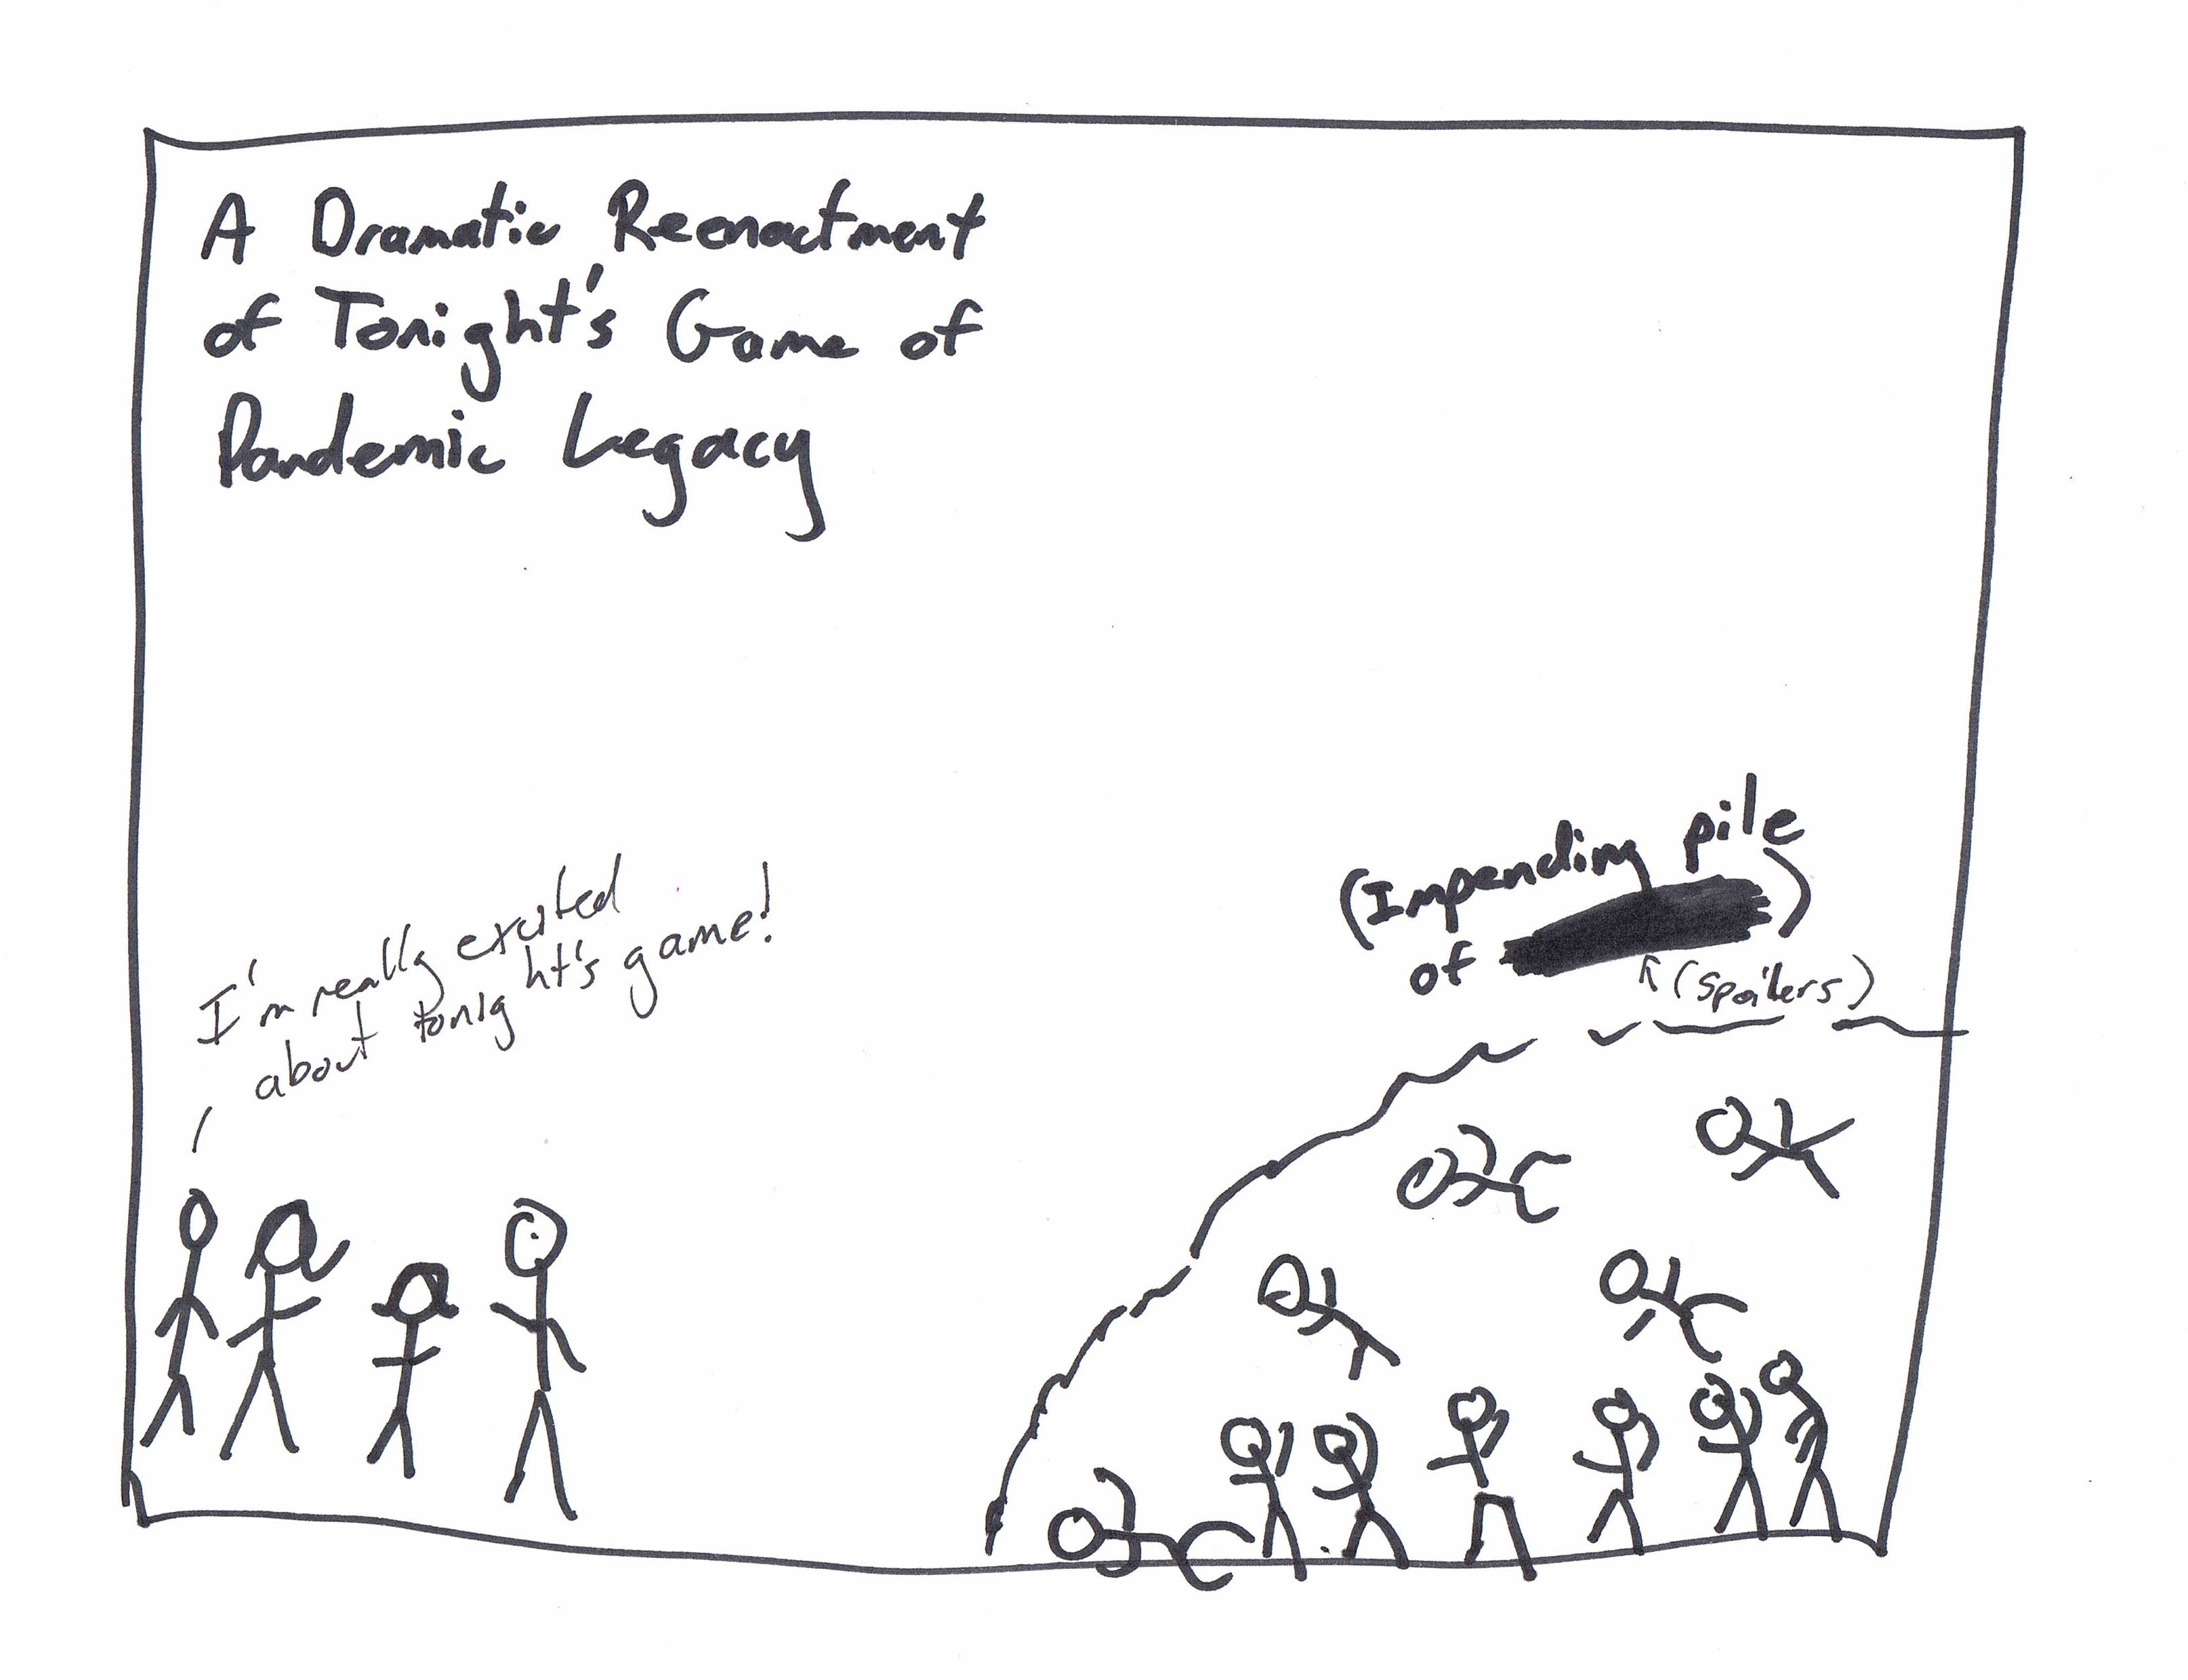 A Dramatic Reenactment
of Tonight's Game of
Pandemic Legacy
I'm really excited
about tonight's game!
(Impending pile
of )
(spoilers)